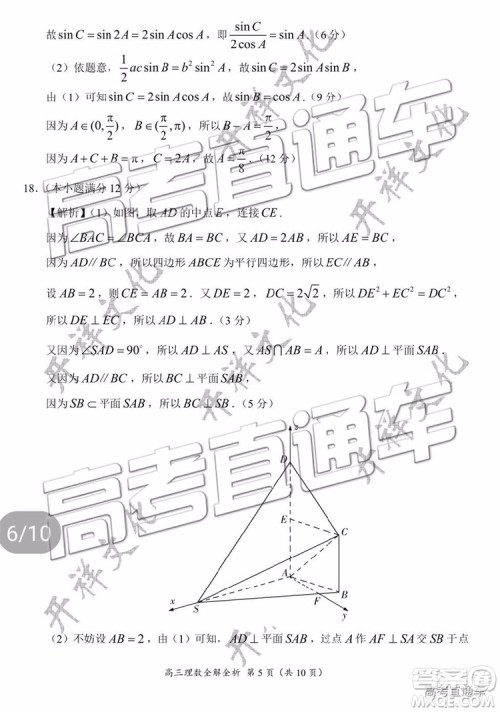 故 sin C = sin 2A = 2sin A cos A，即 sin C / 2cos A = sin A（6分）
（2）依题意，1/2 ac sin B = b² sin² A，故 sin C = 2sin A sin B，
由（1）可知 sin C = 2sin A cos A，故 sin B = cos A.（9分）
因为 A∈(0, π/2)，B∈(π/2, π)，所以 B − A = π/2，
因为 A + B + C = π，C = 2A，故 A = π/8.（12分）
18.（本小题满分12分）
【解析】（1）如图，取 AD 的中点 E，连接 CE.
因为 ∠BAC = ∠BCA，故 BA = BC，又 AD = 2AB，所以 AE = BC，
因为 AD // BC，所以四边形 ABCE 为平行四边形，所以 EC // AB，
设 AB = 2，则 CE = AB = 2. 又 DE = 2，DC = 2√2，所以 DE² + EC² = DC²，
所以 DE ⊥ EC，所以 AD ⊥ AB.（3分）
又因为 ∠SAD = 90°，所以 AD ⊥ AS，又 AS∩AB = A，所以 AD ⊥ 平面 SAB.
又因为 AD // BC，所以 BC ⊥ 平面 SAB，
因为 SB ⊂ 平面 SAB，所以 BC ⊥ SB.（5分）
z
D
E
C
A
B
F
S
x
y
6/10
（2）不妨设 AB = 2，由（1）可知，AD ⊥ 平面 SAB，过点 A 作 AF ⊥ SA 交 SB 于点
高三理数全解全析 第5页（共10页）
高考直通车
高考直通车
开祥文化
开祥文化
开祥文化
开祥文化
答案圈
MXQE.COM
高考直通车